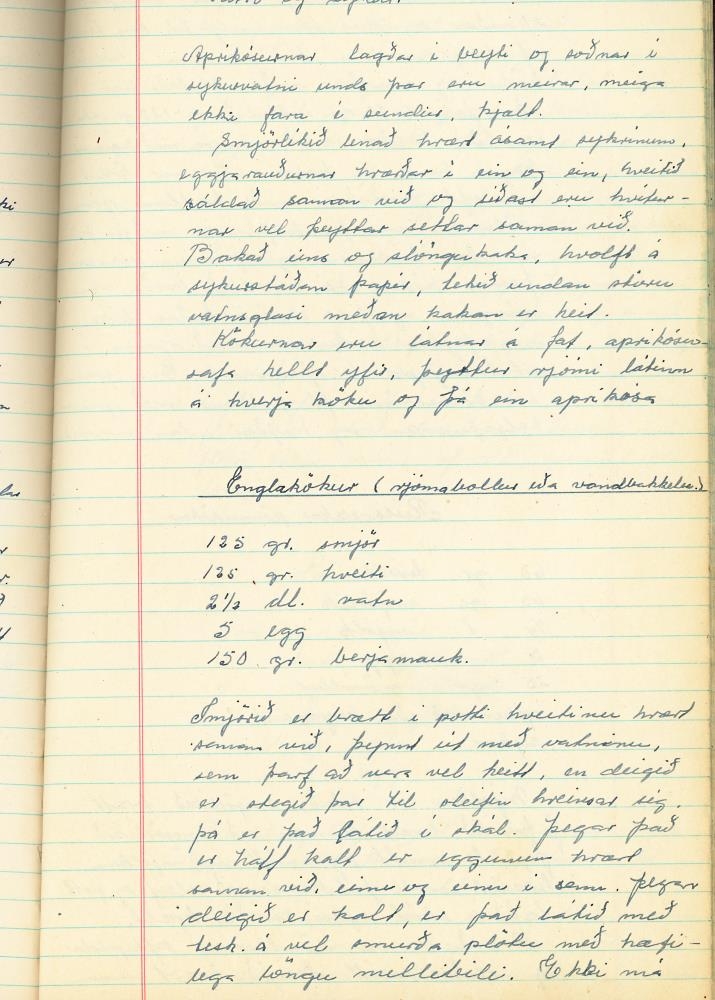 Apríkósurnar lagðar í bleyti og soðnar í
sykurvatni unds þær eru meirar, meiga
ekki fara í sundur, kælt.
Smjörlíkið linað hrært ásamt sykrinum,
eggjarauðurnar hrærðar í ein og ein, hveitið
sáldað saman við og síðast eru hvítur-
nar vel þeyttar settar saman við.
Bakað eins og slöngukaka, hvolft á
sykurstáðan papír, tekið undan stóru
vatnsglasi meðan kakan er heit.
Kökurnar eru látnar á fat, apríkósu-
safa hellt yfir, þeyttur rjómi látinn
á hverja köku og þá ein apríkósa
Englakökur (rjómabollur eða vandbakkelse.)
125 gr. smjör
125 gr. hveiti
2 1/2 dl. vatn
5 egg
150 gr. berjamauk.
Smjörið er brætt í potti hveitinu hrært
saman við, þynnt út með vatninu,
sem þarf að vera vel heitt, en deigið
er stegið þar til sleifin hreinsar sig.
þá er það látið í skál. Þegar það
er hálf kalt er eggunum hrært
saman við, einu og einu í senn. Þegar
deigið er kalt, er það látið með
tesk. á vel smurða plötu með hæfi-
lega löngu millibili. Ekki má